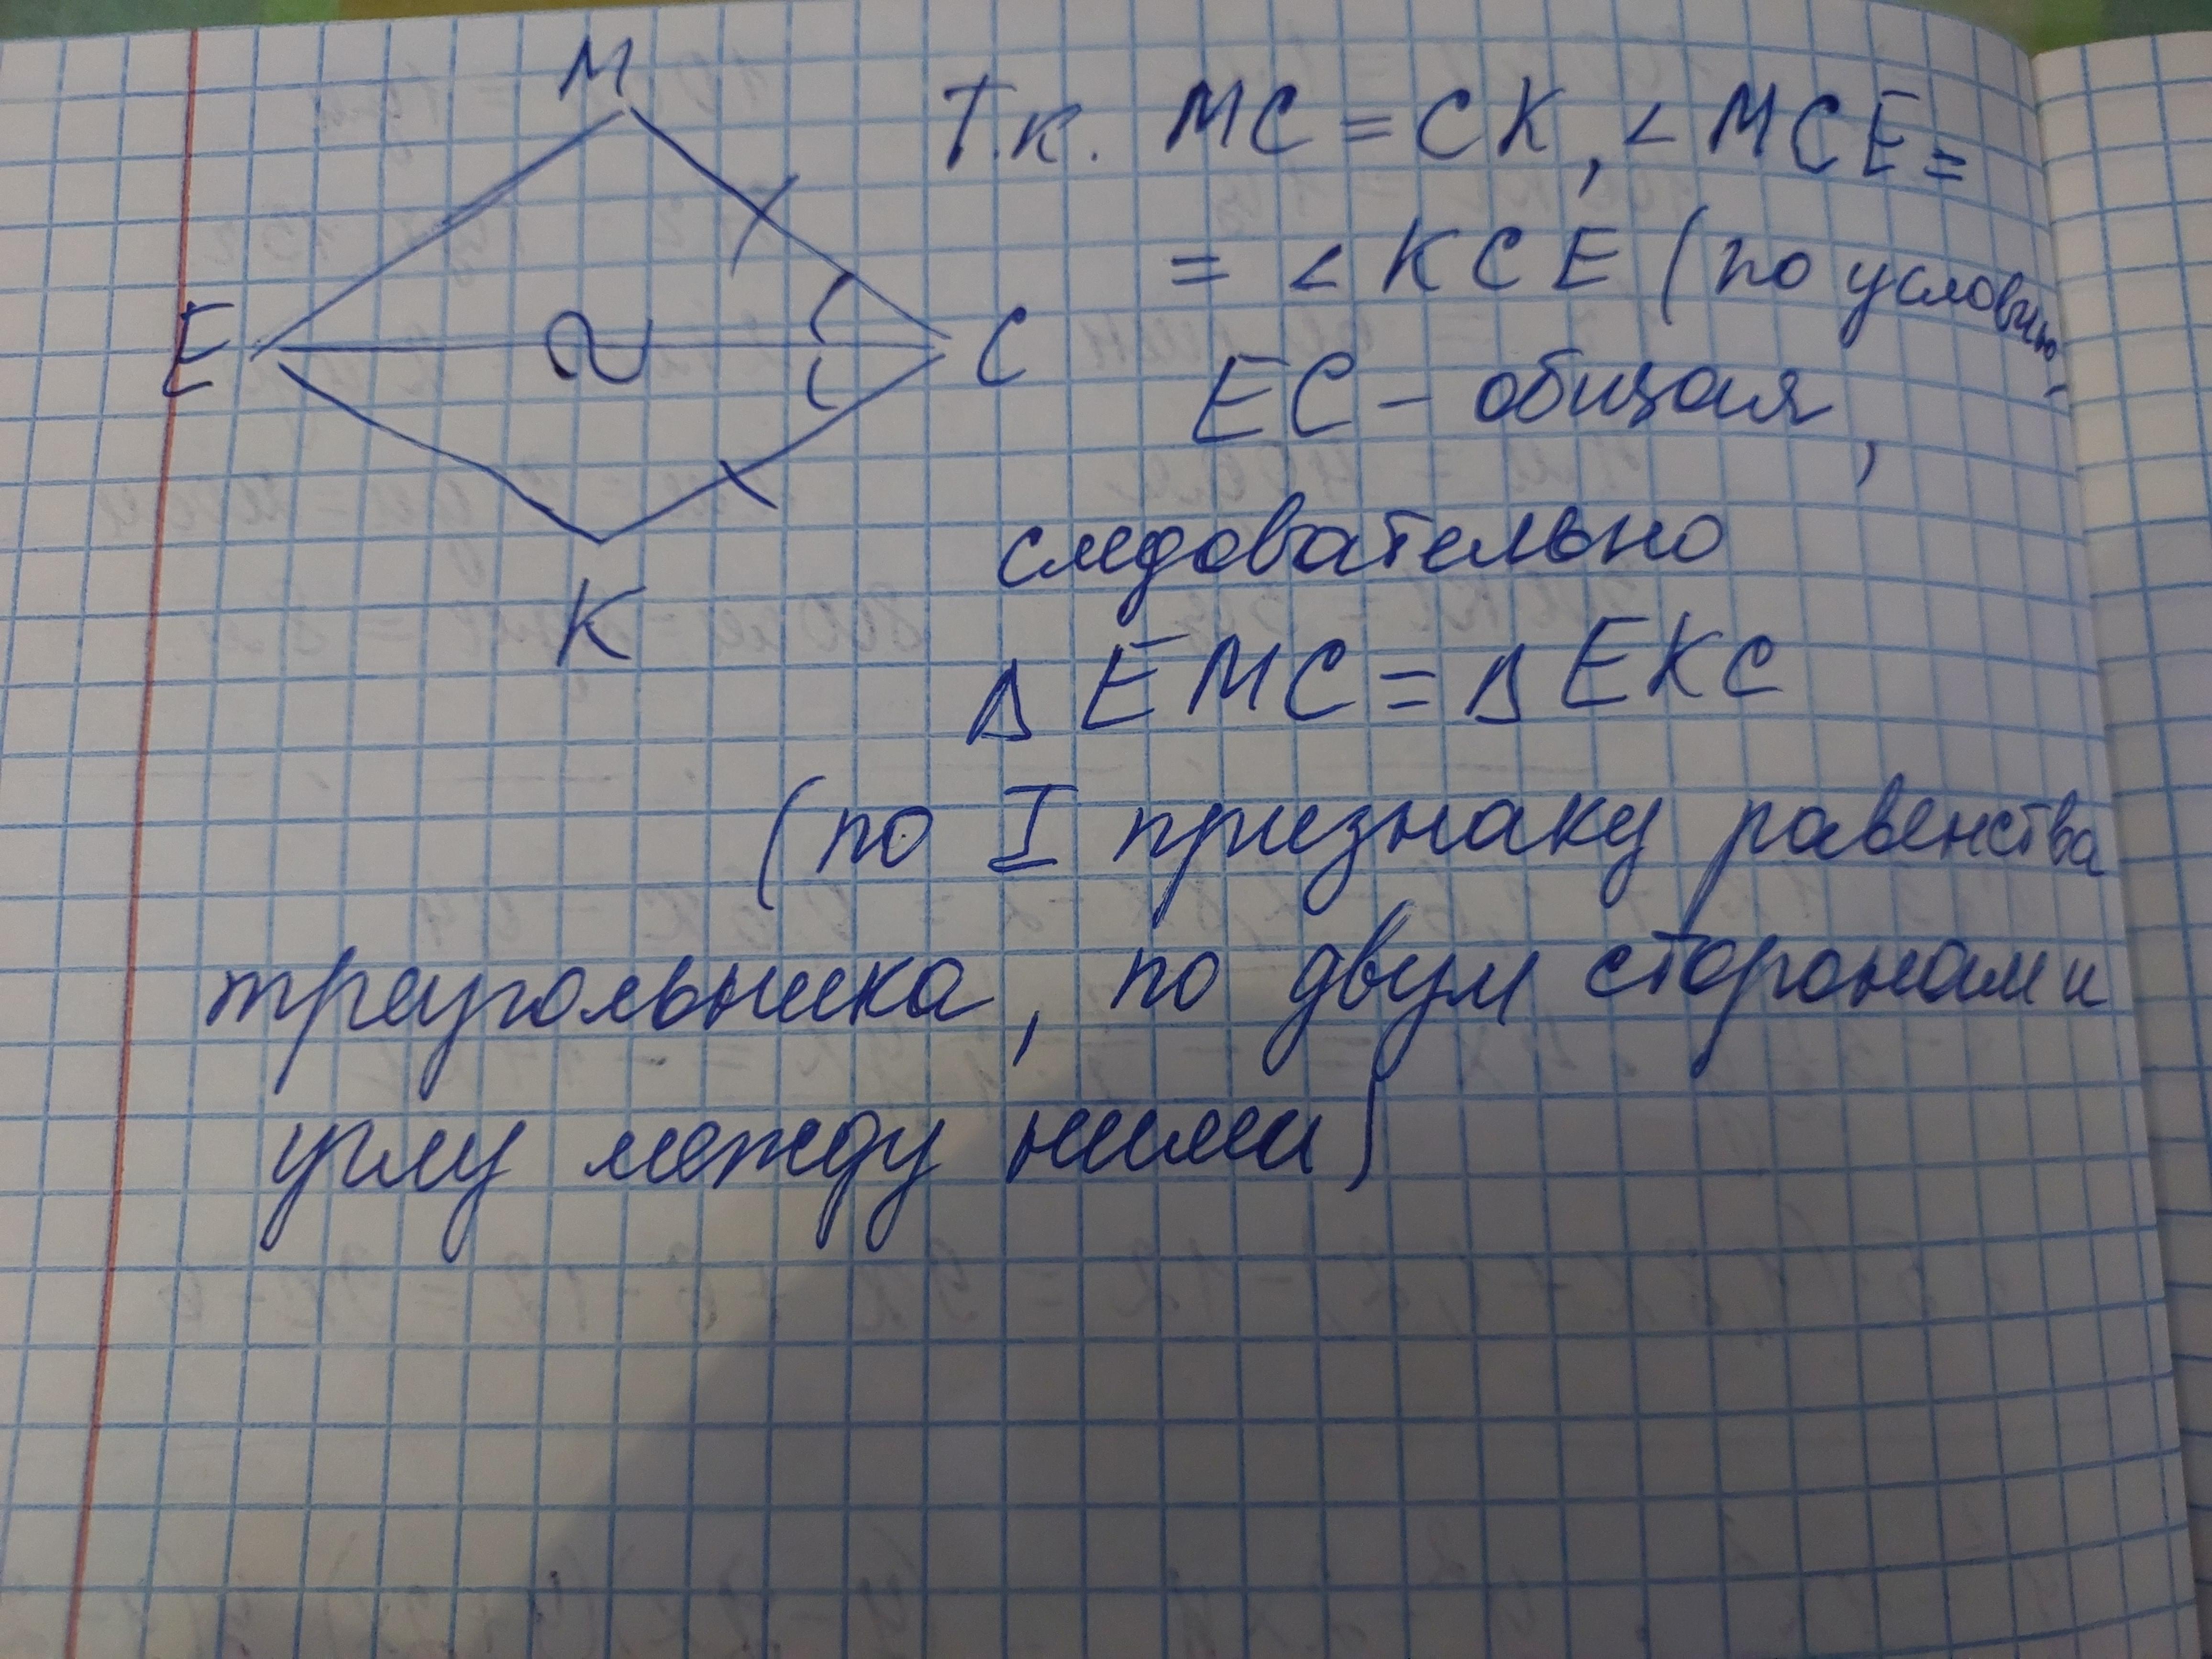 M
E
C
K
Т.к. MC = CK, < MCE =
= < KCE (по условию,
EC - общая,
следовательно
Δ EMC = Δ EKC
(по I признаку равенства
треугольника, по двум сторонам и
углу между ними)